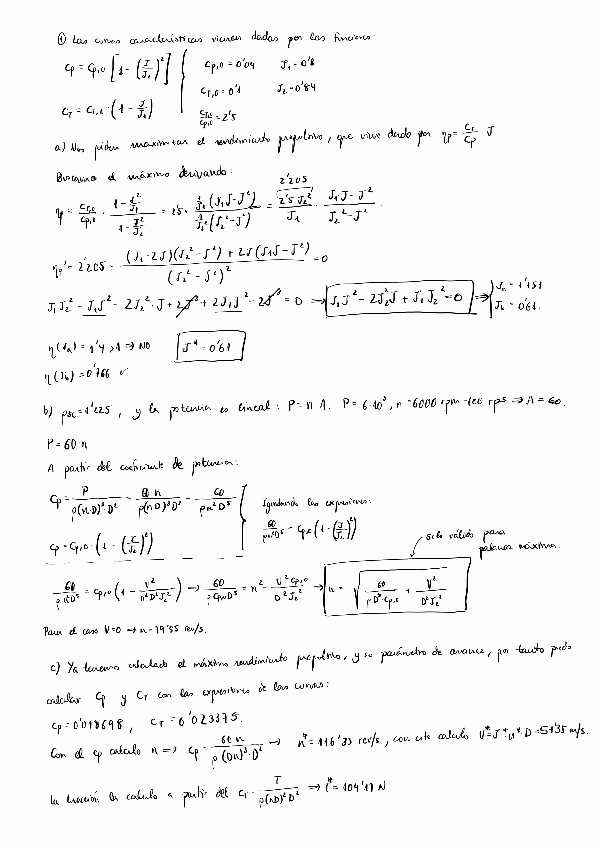 ① Las curvas características vienen dadas por las funciones:
Cp = Cp,0 [1 - (J/J₂)²] Cp,0 = 0'04 J₁ = 0'8
C_T = C_T,0 · (1 - J/J₁) C_T,0 = 0'1 J₂ = 0'84
C_T,0/Cp,0 = 2'5
a) Nos piden maximizar el rendimiento propulsivo, que viene dado por ηp = C_T/Cp J
Buscamos el máximo derivando:
J₁J₂² - J₁J² - 2J₂²·J + 2J³ + 2J₁J² - 2J³ = 0 → J₁J² - 2J₂²J + J₁J₂² = 0 ⇒ Ja = 1'151
Jb = 0'61
η(Ja) = 1'4 > 1 ⇒ NO J* = 0'61
η(Jb) = 0'766 ✓
b) , y la potencia es lineal: P = n A. P = 6·10³, n = 6000 rpm = 100 rps ⇒ A = 60.
P = 60·n
A partir del coeficiente de potencia:
Cp = P/(ρ(n·D)³D²) = 60 n/(ρ(nD)³D²) = 60/(ρn²D⁵)
Igualando las expresiones:
60/(ρn²D⁵) = Cp,0 (1 - (J/J₂)²)
Cp = Cp,0 · (1 - (J/J₂)²)
solo válido para
potencia máxima.
60/(ρn²D⁵) = Cp,0 (1 - V²/(n²D²J₂²)) → n = √(60/(ρD⁵·Cp,0) + V²/(D²J₂²))
Para el caso V=0 → n = 79'55 rev/s.
c) Ya tenemos calculado el máximo rendimiento propulsivo, y su parámetro de avance, por tanto puedo
calcular Cp y C_T con las expresiones de las curvas:
Cp = 0'018698, C_T = 0'023375.
Con el cp calculo n ⇒ Cp = 60 n/(ρ(Dn)³·D²) → n* = 116'33 rev/s., con este calculo V* = J*·n*·D = 51'35 m/s.
la tracción la calculo a partir del C_T = T/(ρ(nD)²D²) ⇒ T* = 104'17 N